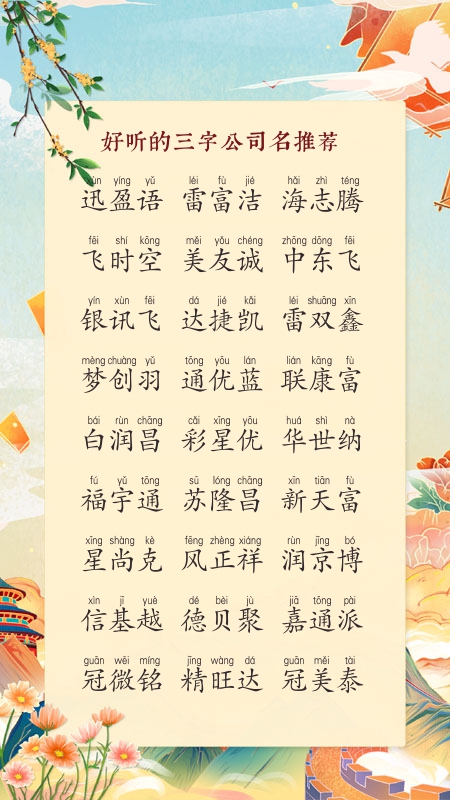 好听的三字公司名推荐
xùn yíng yǔ léi fù jié hǎi zhì téng
迅盈语 雷富洁 海志腾
fēi shí kōng měi yǒu chéng zhōng dōng fēi
飞时空 美友诚 中东飞
yín xùn fēi dá jié kǎi léi shuāng xīn
银讯飞 达捷凯 雷双鑫
mèng chuàng yǔ tōng yōu lán lián kāng fù
梦创羽 通优蓝 联康富
bái rùn chāng cǎi xīng yōu huá shì nà
白润昌 彩星优 华世纳
fú yǔ tōng sū lóng chāng xīn tiān fù
福宇通 苏隆昌 新天富
xīng shàng kè fēng zhèng xiáng rùn jīng bó
星尚克 风正祥 润京博
xìn jī yuè dé bèi jù jiā tōng pài
信基越 德贝聚 嘉通派
guān wēi míng jīng wàng dá guān měi tài
冠微铭 精旺达 冠美泰